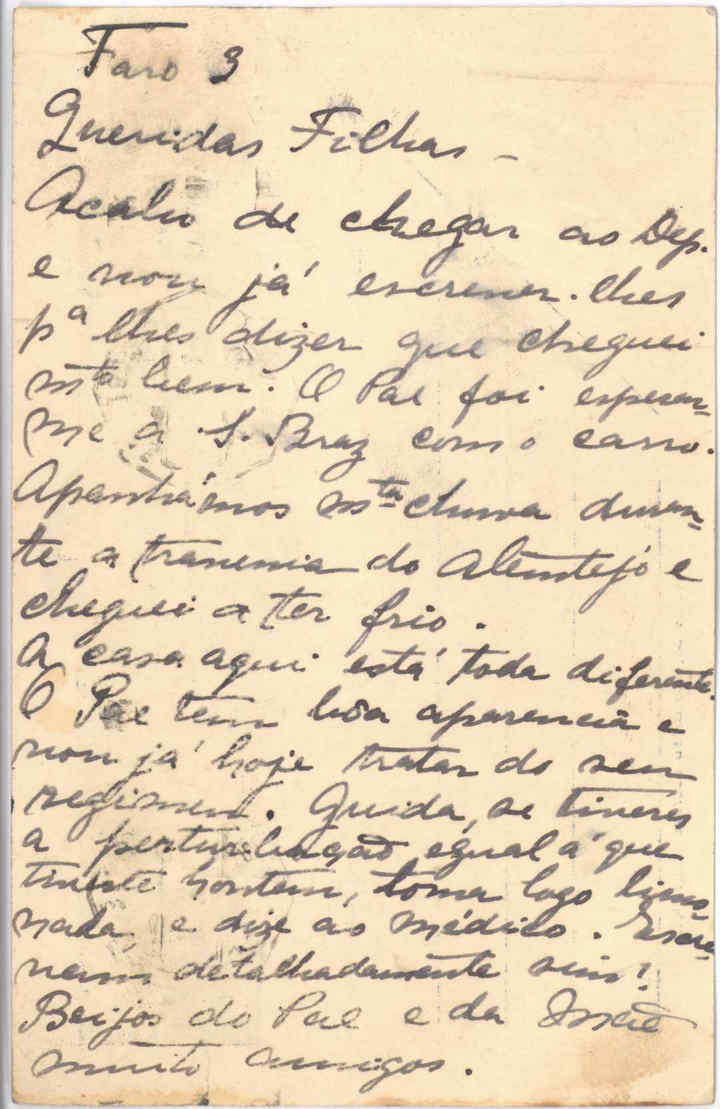 Faro 3
Queridas Filhas -
Acabo de chegar ao Dep.
e vou já escrever-lhes
pª lhes dizer que cheguei
mtº bem. O Pae foi esperar-
me a S. Braz com o carro.
Apanhámos mta chuva duran-
te a travessia do Alemtejo e
cheguei a ter frio.
A casa aqui está toda diferente.
O Pae tem bôa aparencia e
vou já hoje tratar do seu
regimen. Guida, se tiveres
a perturbação egual á que
tiveste hontem, toma logo limo-
nada, e dize ao médico. Escre-
vam detalhadamente sim!
Beijos do Pae e da Mãe
muito amigos.